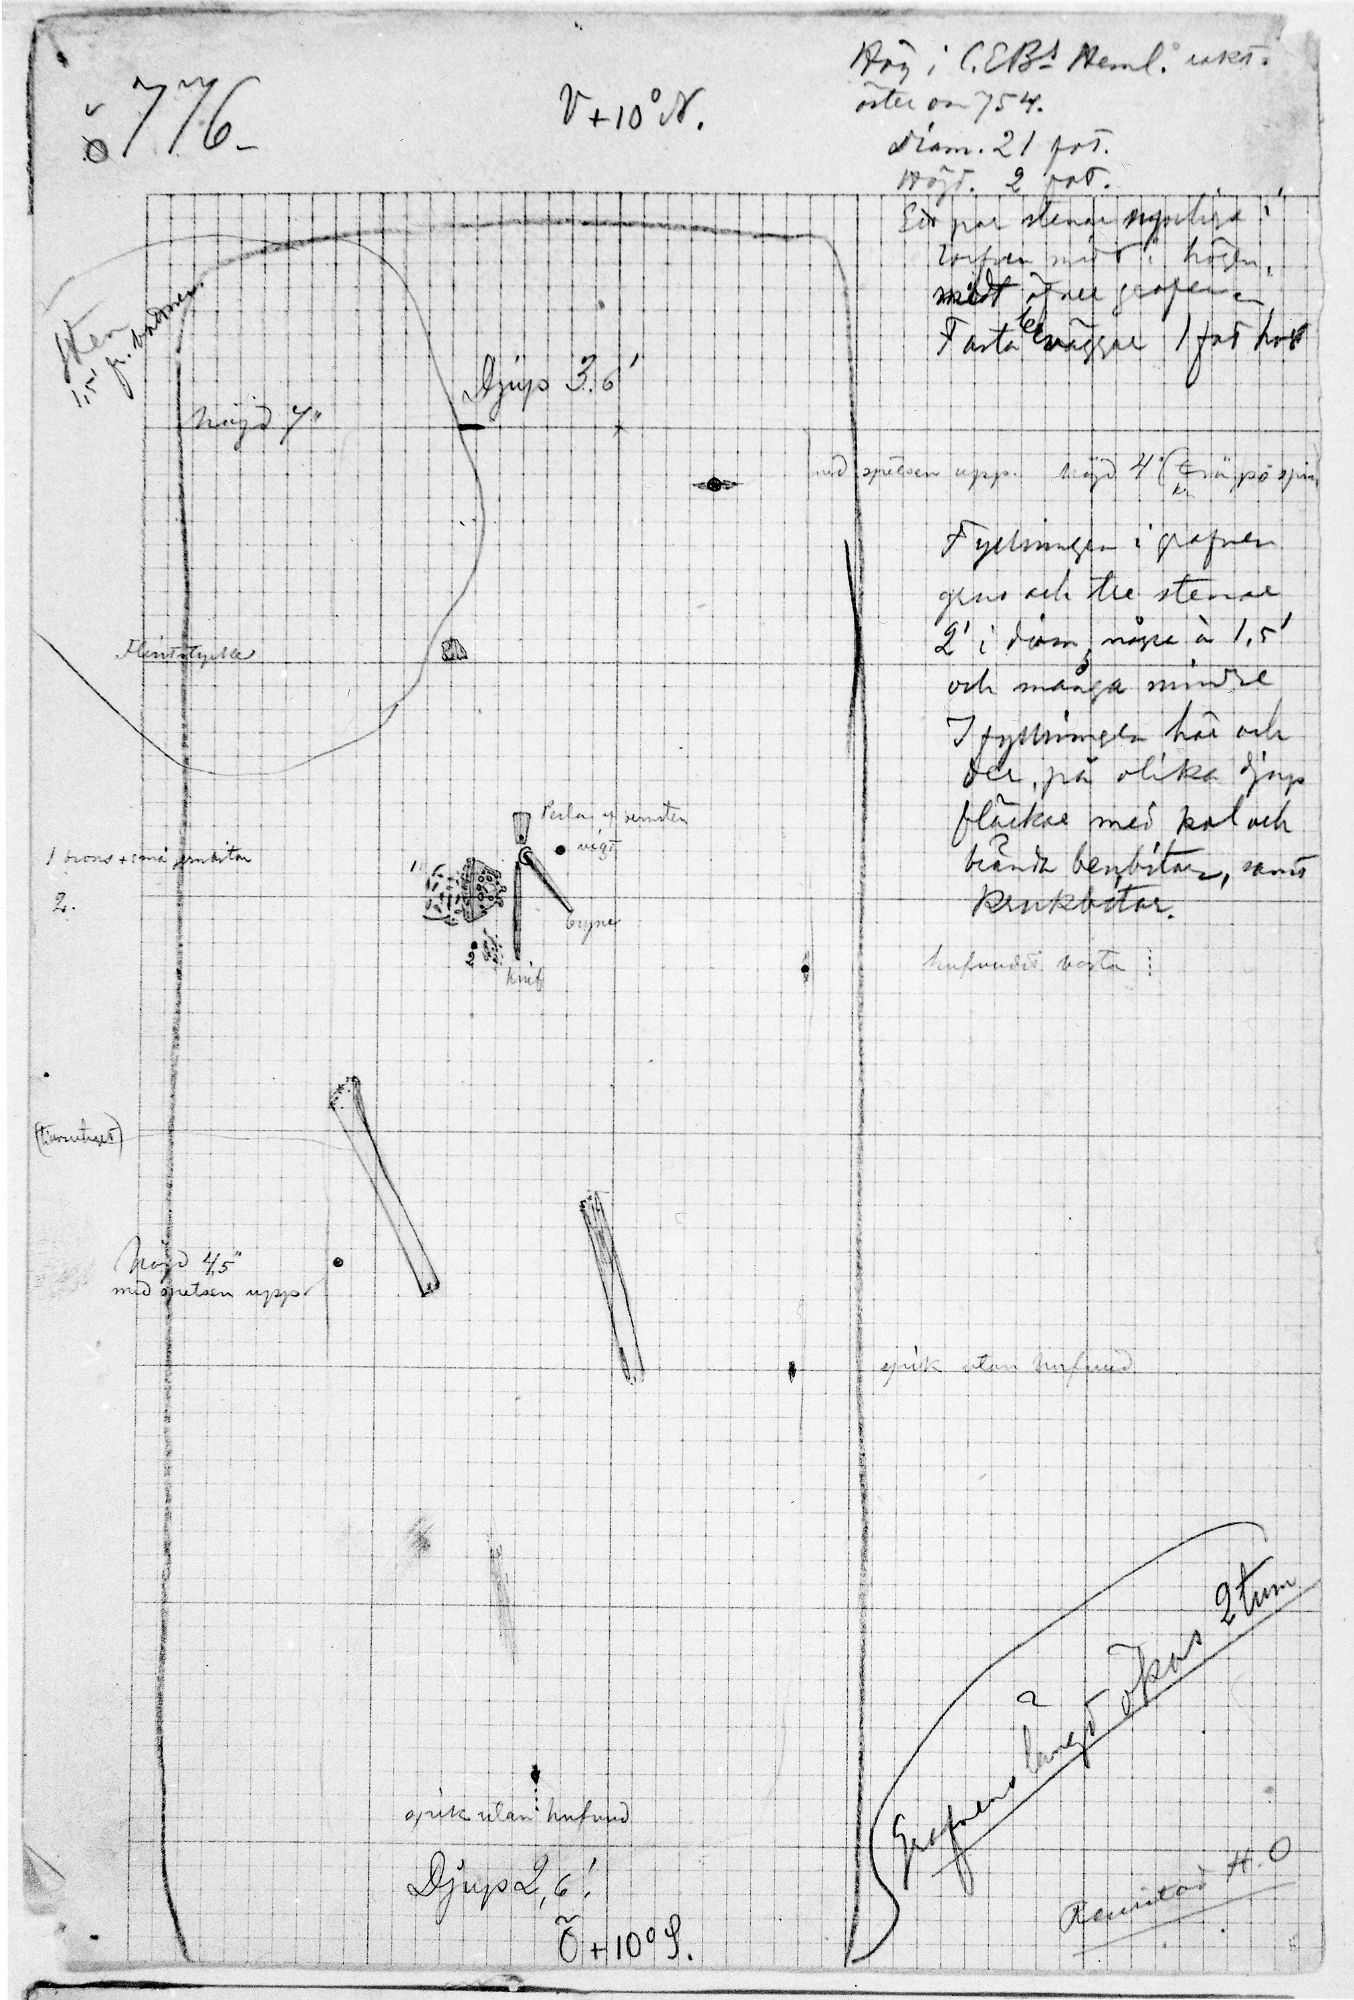 776.
V + 10° N.
Hög i C.E.Bs Heml. rakt.
öster om 754.
Diam. 21 fot.
Höjd. 2 fot.
Ett par stenar synliga i
torfven midt i högen,
midt öfver grafven
Fasta lerväggar 1 fot höj
Sten
1,5' fr. bottnen
Djup 3.6'
höjd 7"
med spetsen upp. höjd 4"
Fyllningen i grafven
grus och tre stenar
2' i diam, några à 1,5'
och många mindre
I fyllningen här och
der, på olika djup
fläckar med kol och
brända benbitar, samt
krukbitar.
Flintstycke
Perla af bernsten
vigt
1 brons + små jernbitar
2.
1
bryne
2
knif
hufvudet borta
höjd 4,5"
med spetsen upp
spik utan hufvud
Grafvens längd ökas 2 tum
?
spik utan hufvud
Djup 2,6'.
Renritad H.O
Ö + 10° S.